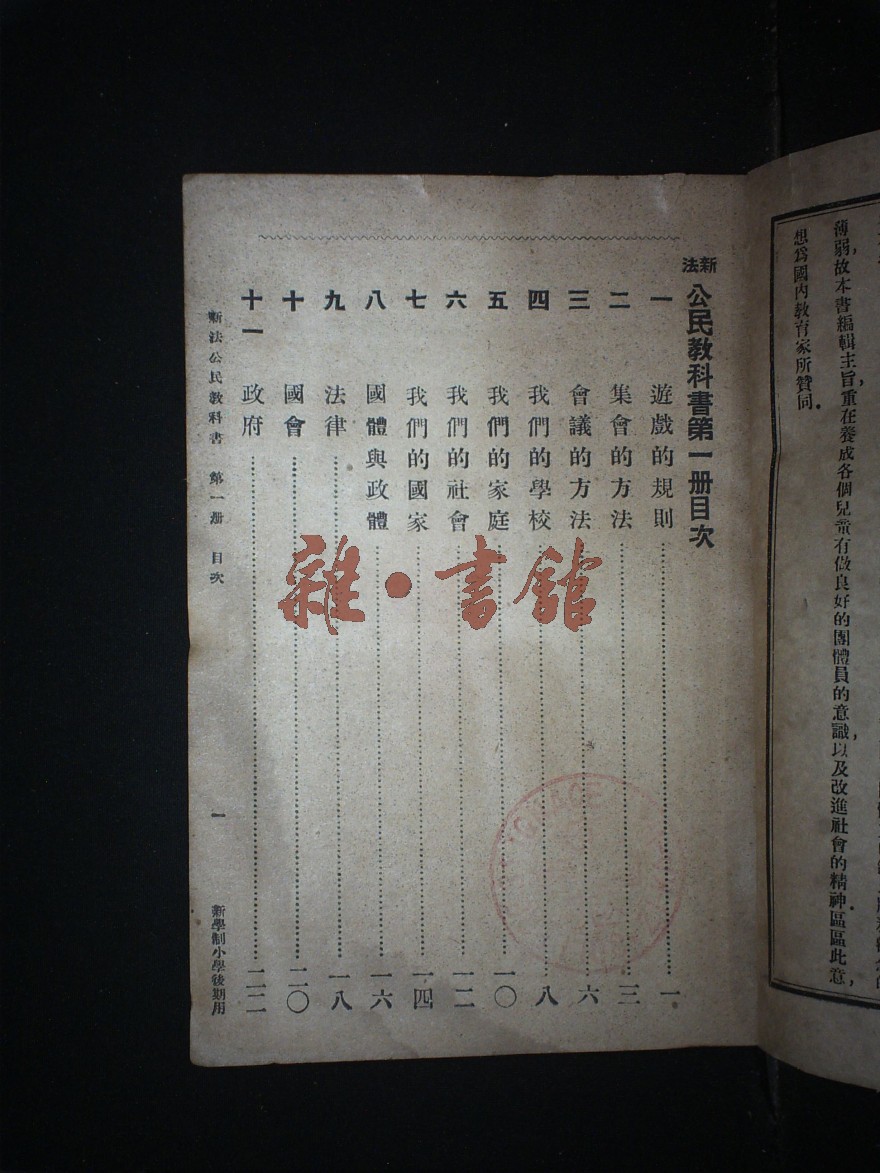 薄弱，故本書編輯主旨，重在養成各個兒童有做良好的團體員的意識，以及改進社會的精神。區區此意，
想爲國內教育家所贊同。
新法公民教科書第一册目次
一　遊戲的規則……一
二　集會的方法……三
三　會議的方法……六
四　我們的學校……八
五　我們的家庭……一〇
六　我們的社會……一二
七　我們的國家……一四
八　國體與政體……一六
九　法律……一八
十　國會……二〇
十一　政府……二二
新法公民教科書　第一册　目次　一　新學制小學後期用
雜·書館